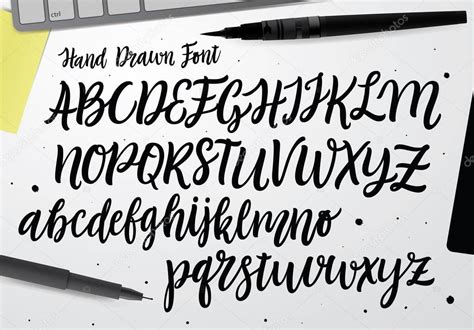 ctrl
Hand Drawn Font
ABCDEFGHIJKLM
NOPQRSTUVWXYZ
abcdefghijklmno
pqrstuvwxyz